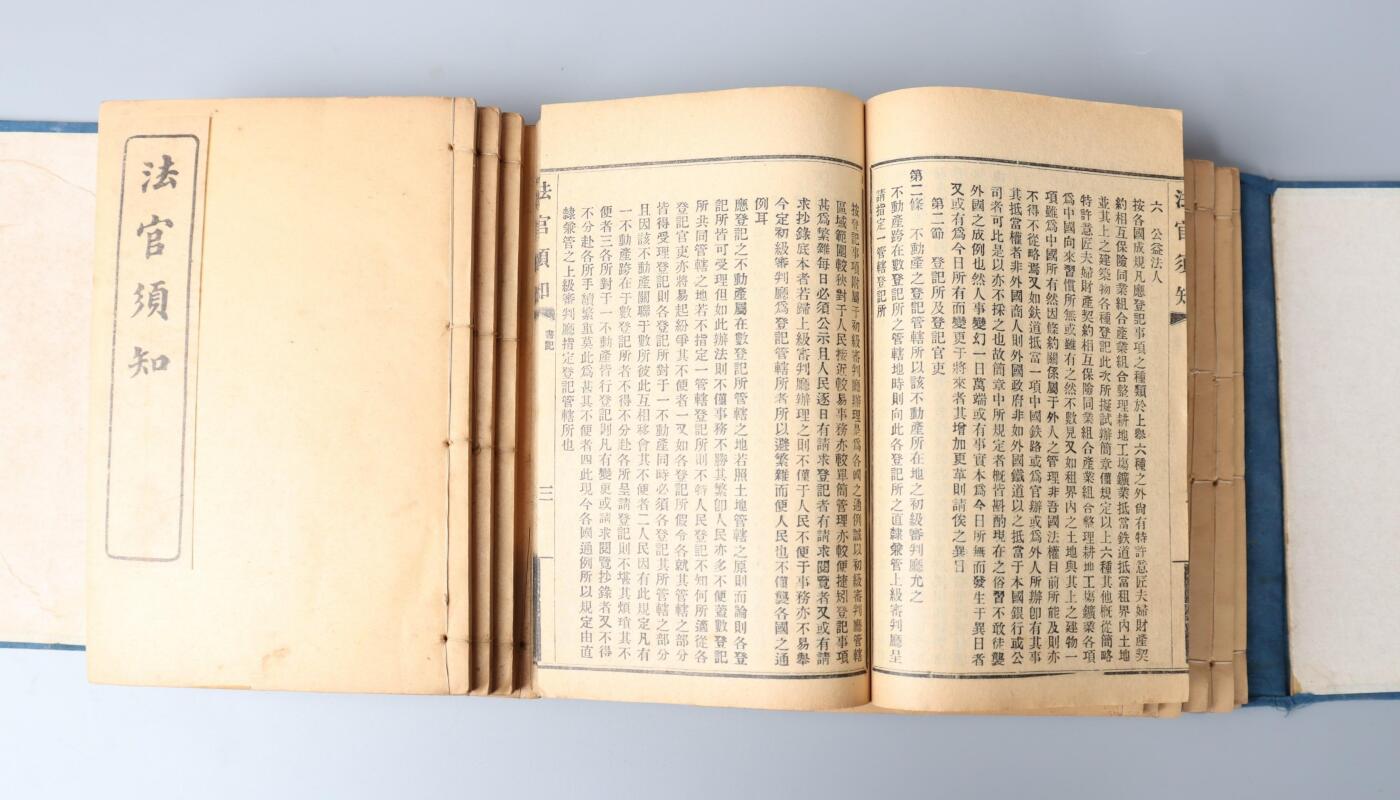 法官須知
六　公益法人
按各國成規凡應登記事項之種類於上舉六種之外尙有特許意匠夫婦財產契
約相互保險同業組合產業組合整理耕地工塲鑛業抵當鉄道抵當租界內土地
並其上之建築物各種登記此次所擬試辦簡章僅規定以上六種其他槪從簡略
特許意匠夫婦財產契約相互保險同業組合產業組合整理耕地工塲鑛業各項
爲中國向來習慣所無或雖有之然不數見又如租界內之土地與其上之建物一
項雖爲中國所有然因條約關係屬于外人之管理非吾國法權目前所能及則亦
不得不從略焉又如鉄道抵當一項中國鉄路或爲官辦或爲外人所辦卽有其事
其抵當權者非外國商人則外國政府非如外國鐵道以之抵當于本國銀行或公
司者可比是以亦不採之也故簡章中所規定者槪皆斟酌現在之俗習不敢徒襲
外國之成例也然人事變幻一日萬端或有事實本爲今日所無而發生于異日者
又或有爲今日所有而變更于將來者其增加更革則請俟之異日
第二節　登記所及登記官吏
第二條　不動產之登記管轄所以該不動產所在地之初級審判廳允之
不動產跨在數登記所之管轄地時則向此各登記所之直隸兼管上級審判廳呈
請指定一管轄登記所
按登記事項附屬于初級審判廳辦理是爲各國之通例誠以初級審判廳管轄
區域範圍較狹對于人民接近較易事務亦較單簡管理亦較便捷矧登記事項
甚爲繁雜每日必須公示且人民逐日有請求登記者有請求閱覽者又或有請
求抄錄底本者若歸上級審判廳辦理之則不僅于人民不便于事務亦不易舉
今定初級審判廳爲登記管轄所者所以避繁雜而便人民也不僅襲各國之通
例耳
應登記之不動產屬在數登記所管轄之地若照土地管轄之原則而論則各登
記所皆可受理但如此辦法則不僅事務不勝其繁卽人民亦多不便蓋數登記
所共同管轄之地若不指定一管轄登記所則不特人民登記不知何所適從各
登記官吏亦將易起紛爭其不便者一又如各登記所假令各就其管轄之部分
皆得受理登記則各登記所對于一不動產同時必須各登記其所管轄之部分
且因該不動產關聯于數所彼此互相移會其不便者二人民因有此規定凡有
一不動產跨在于數登記所者不得不分赴各所呈請登記則不堪其煩瑣其不
便者三各所對于一不動產皆行登記則凡有變更或請求閱覽抄錄者又不得
不分赴各所手續繁重莫此爲甚其不便者四此現今各國通例所以規定由直
隸兼管之上級審判廳指定登記管轄所也
法官須知
書記
三
法官須知